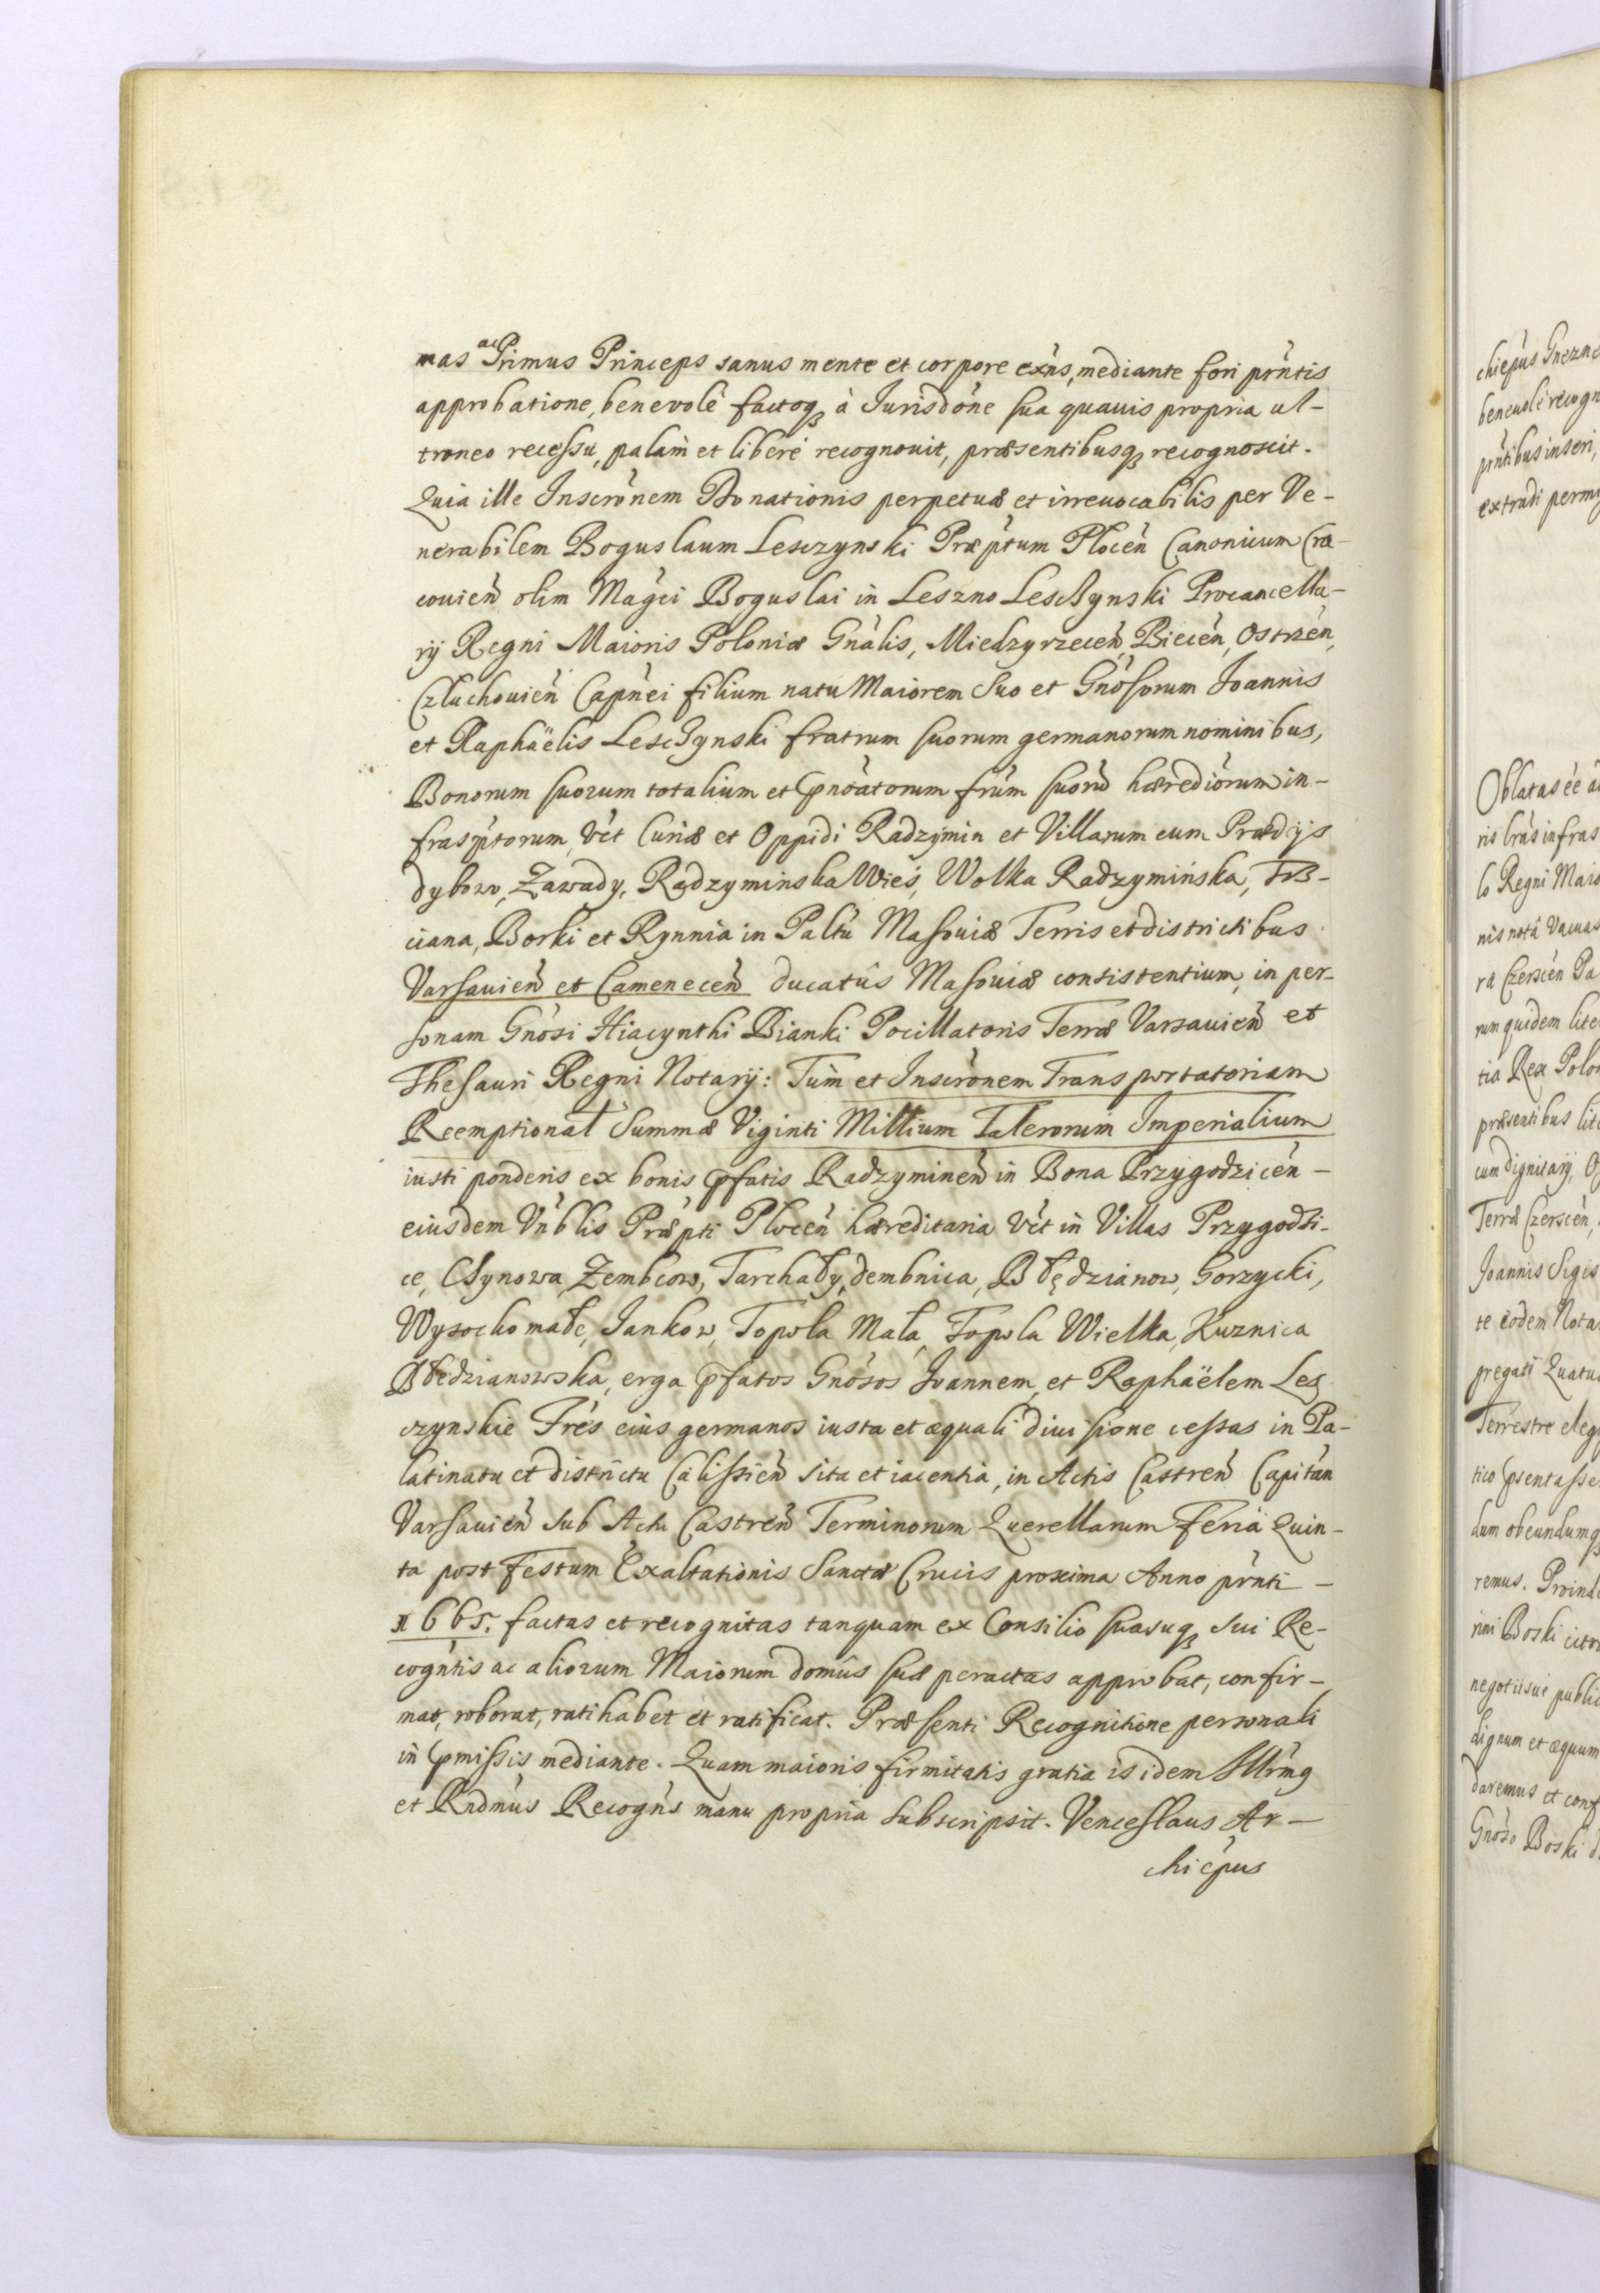 mas ac Primus Princeps sanus mente et corpore exñs, mediante fori pñtis
approbatione, benevolè factoq; à Jurisdoñe sua quavis propria ul-
troneo recessu, palam et liberè recognovit, præsentibusq; recognoscit.
Quia ille Inscroñem Donationis perpetuæ et irrevocabilis per Ve-
nerabilem Boguslaum Lesczynski Præptum Ploceñ Canonicum Cra-
covieñ olim Magci Boguslai in Leszno Lesczynski Procancella-
rij Regni Maioris Poloniæ Gnalis, Miedzyrzeceñ, Bieceñ, Ostrzeñ,
Czluchovieñ Capnei filium natu Maiorem Suo et Gnosorum Joannis
et Raphaëlis Lesczynski fratrum suorum germanorum nominibus,
Bonorum suorum totalium et pnoatorum frum suorũ hærediorum in-
frasptorum, vĉt Curiæ et Oppidi Radzymin et Villarum cum Prædijs
dybow, Zawady, Radzyminska Wieś, Wolka Radzymińska,
ciana, Borki et Rynnia in Paltu Masoviæ Terris et districtibus
Varsavieñ et Cameneceñ ducatûs Masoviæ consistentium, in per-
sonam Gnosi Hiacynthi Bianki Pocillatoris Terræ Varsavieñ et
Thesauri Regni Notarij: Tùm et Inscroñem Transportatoriam
Reemptionał Summæ Viginti Millium Talerorum Imperialium
iusti ponderis ex bonis pfatis Radzymineñ in Bona Przygodziceñ -
eiusdem Vñblis Præpti Ploceñ hæreditaria vĉt in Villas Przygodzi-
ce, Chynowa, Zembcow, Tarchały, dembnica, Błędzianow, Gorzycki,
Wysocko małe, Jankow, Topola Mała, Topola Wielka, Kuznica
Błedzianowska, erga pfatos Gnosos Joannem, et Raphaëlem Les
czynskie Frès eius germanos iusta et æquali divisione cessas in Pa-
latinatu et districtu Calissieñ sita et iacentia, in Actis Castreñ Capitañ
Varsavieñ sub Actu Castreñ Terminorum Querellarum Feria Quin-
ta post Festum Exaltationis Sanctæ Crucis proxima Anno pñti -
1665. factas et recognitas tanquam ex Consilio suasuq; sui Re-
cogntis ac aliorum Maiorum domûs suæ peractas approbat, confir-
mat, roborat, ratihabet et ratificat. Præsenti Recognitione personali
in pmissis mediante. Quam maioris firmitatis gratia is idem Illrmg
et Rndmus Recogns manu propria subscripsit. Venceslaus Ar-
chiepus
chiepus Gnezne
benevolè recogn
pñtibus inseri,
extradi permi
Oblatas ee
ris lras infras
lo Regni Maio
nis notâ Vacuas
ra Czersceñ Pa
rum quidem lite
tia Rex Polon
præsentibus lite
cum dignitarij, O
Terræ Czersceñ,
Joannis Sigis
te eodem Nota
pregati Quatu
Terrestre eleg
tico psentasse
dum obeundumq;
remus. Proinde
rini Boski
negotii sui public
dignum et æquum
daremus et conf
Gnoso Boski d